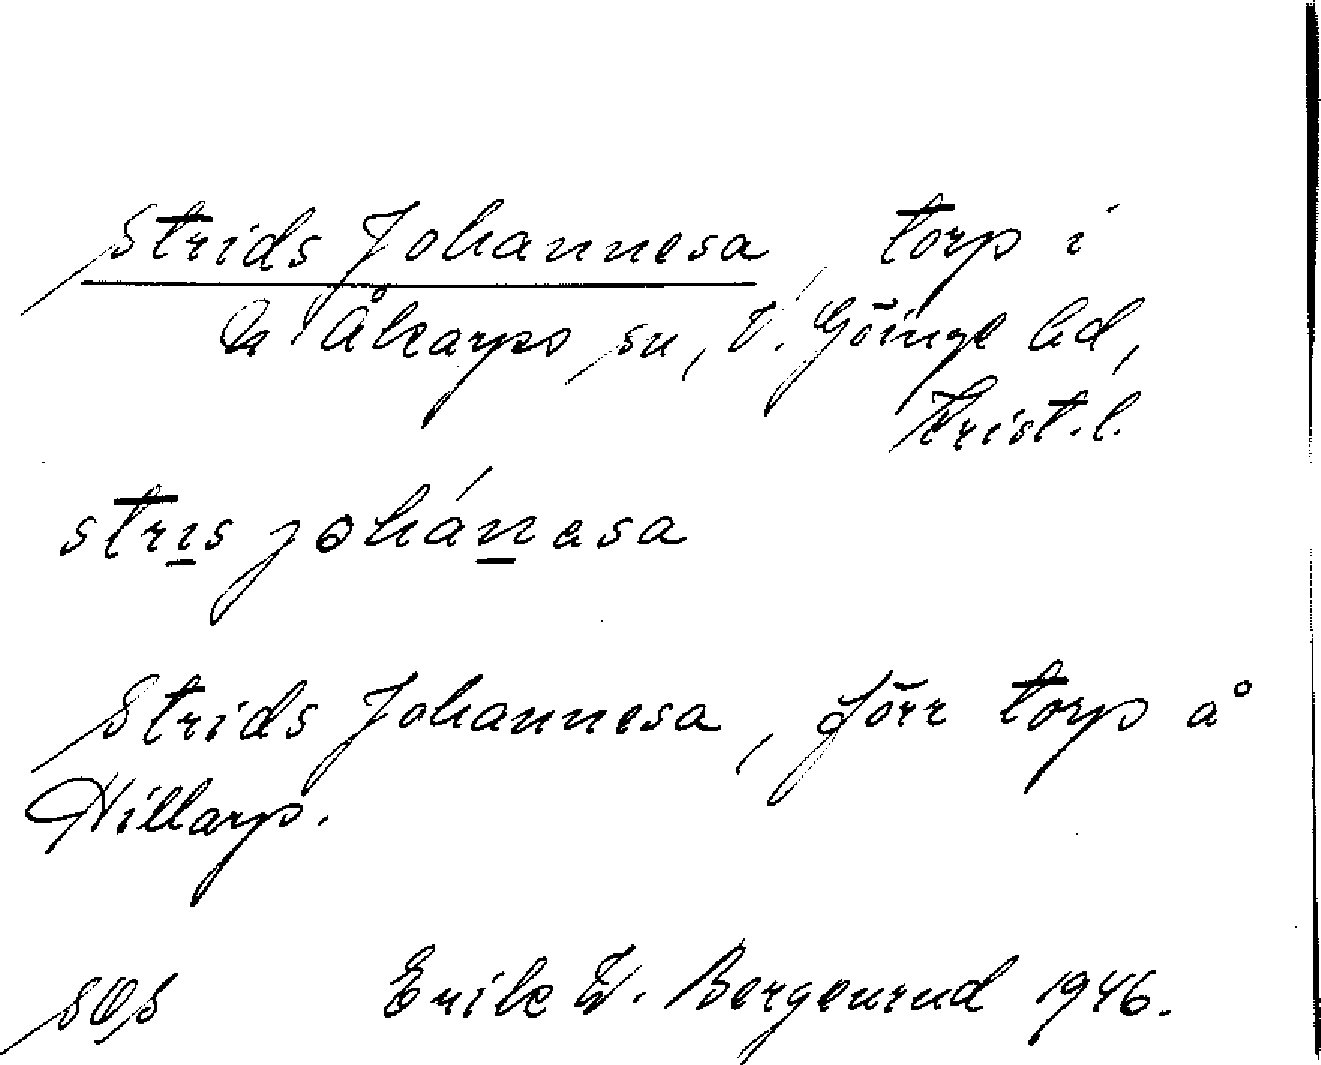 Strids Johannesa, torp i
Åkarps sn, V. Göinge hd,
Krist. l.
strıs johánesa
Strids Johannesa, förr torp å
Hillarp.
Erik W. Bergenrud 1946.